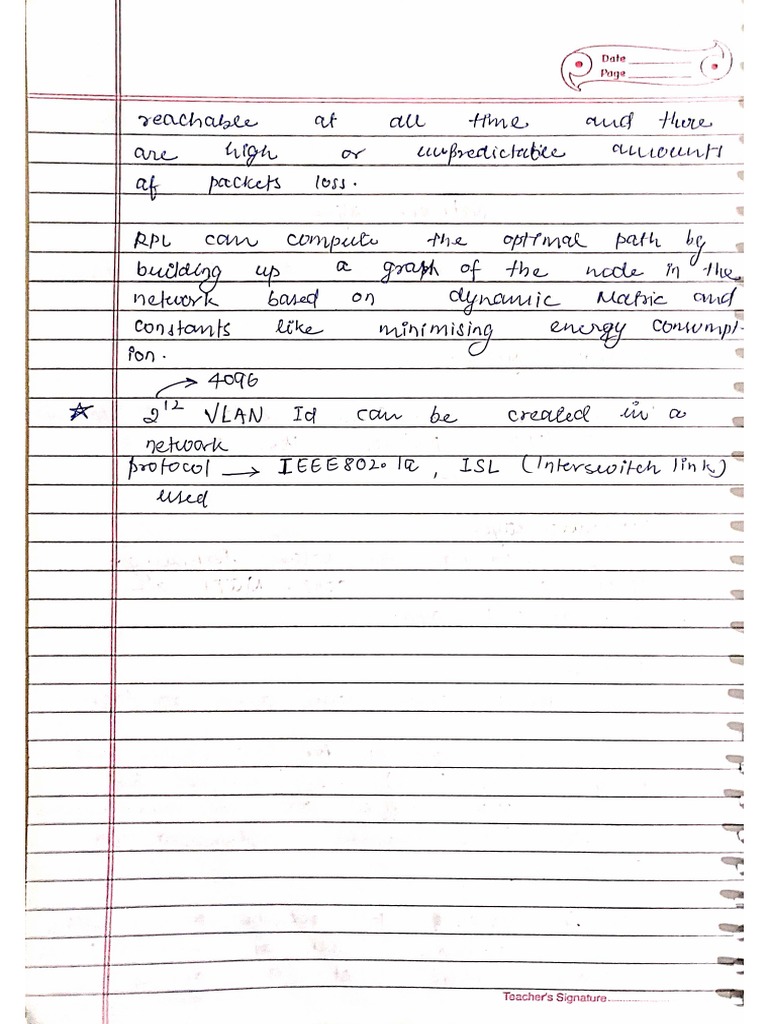 Date
Page
reachable at all time and there
are high or unpredictable amounts
of packets loss.
RPL can compute the optimal path by
building up a graph of the node in the
network based on dynamic Matric and
constants like minimising energy consumpt-
ion.
→ 4096
☆ 2¹² VLAN Id can be created in a
network
protocol → IEEE802.1q, ISL (Interswitch link)
used
Teacher's Signature